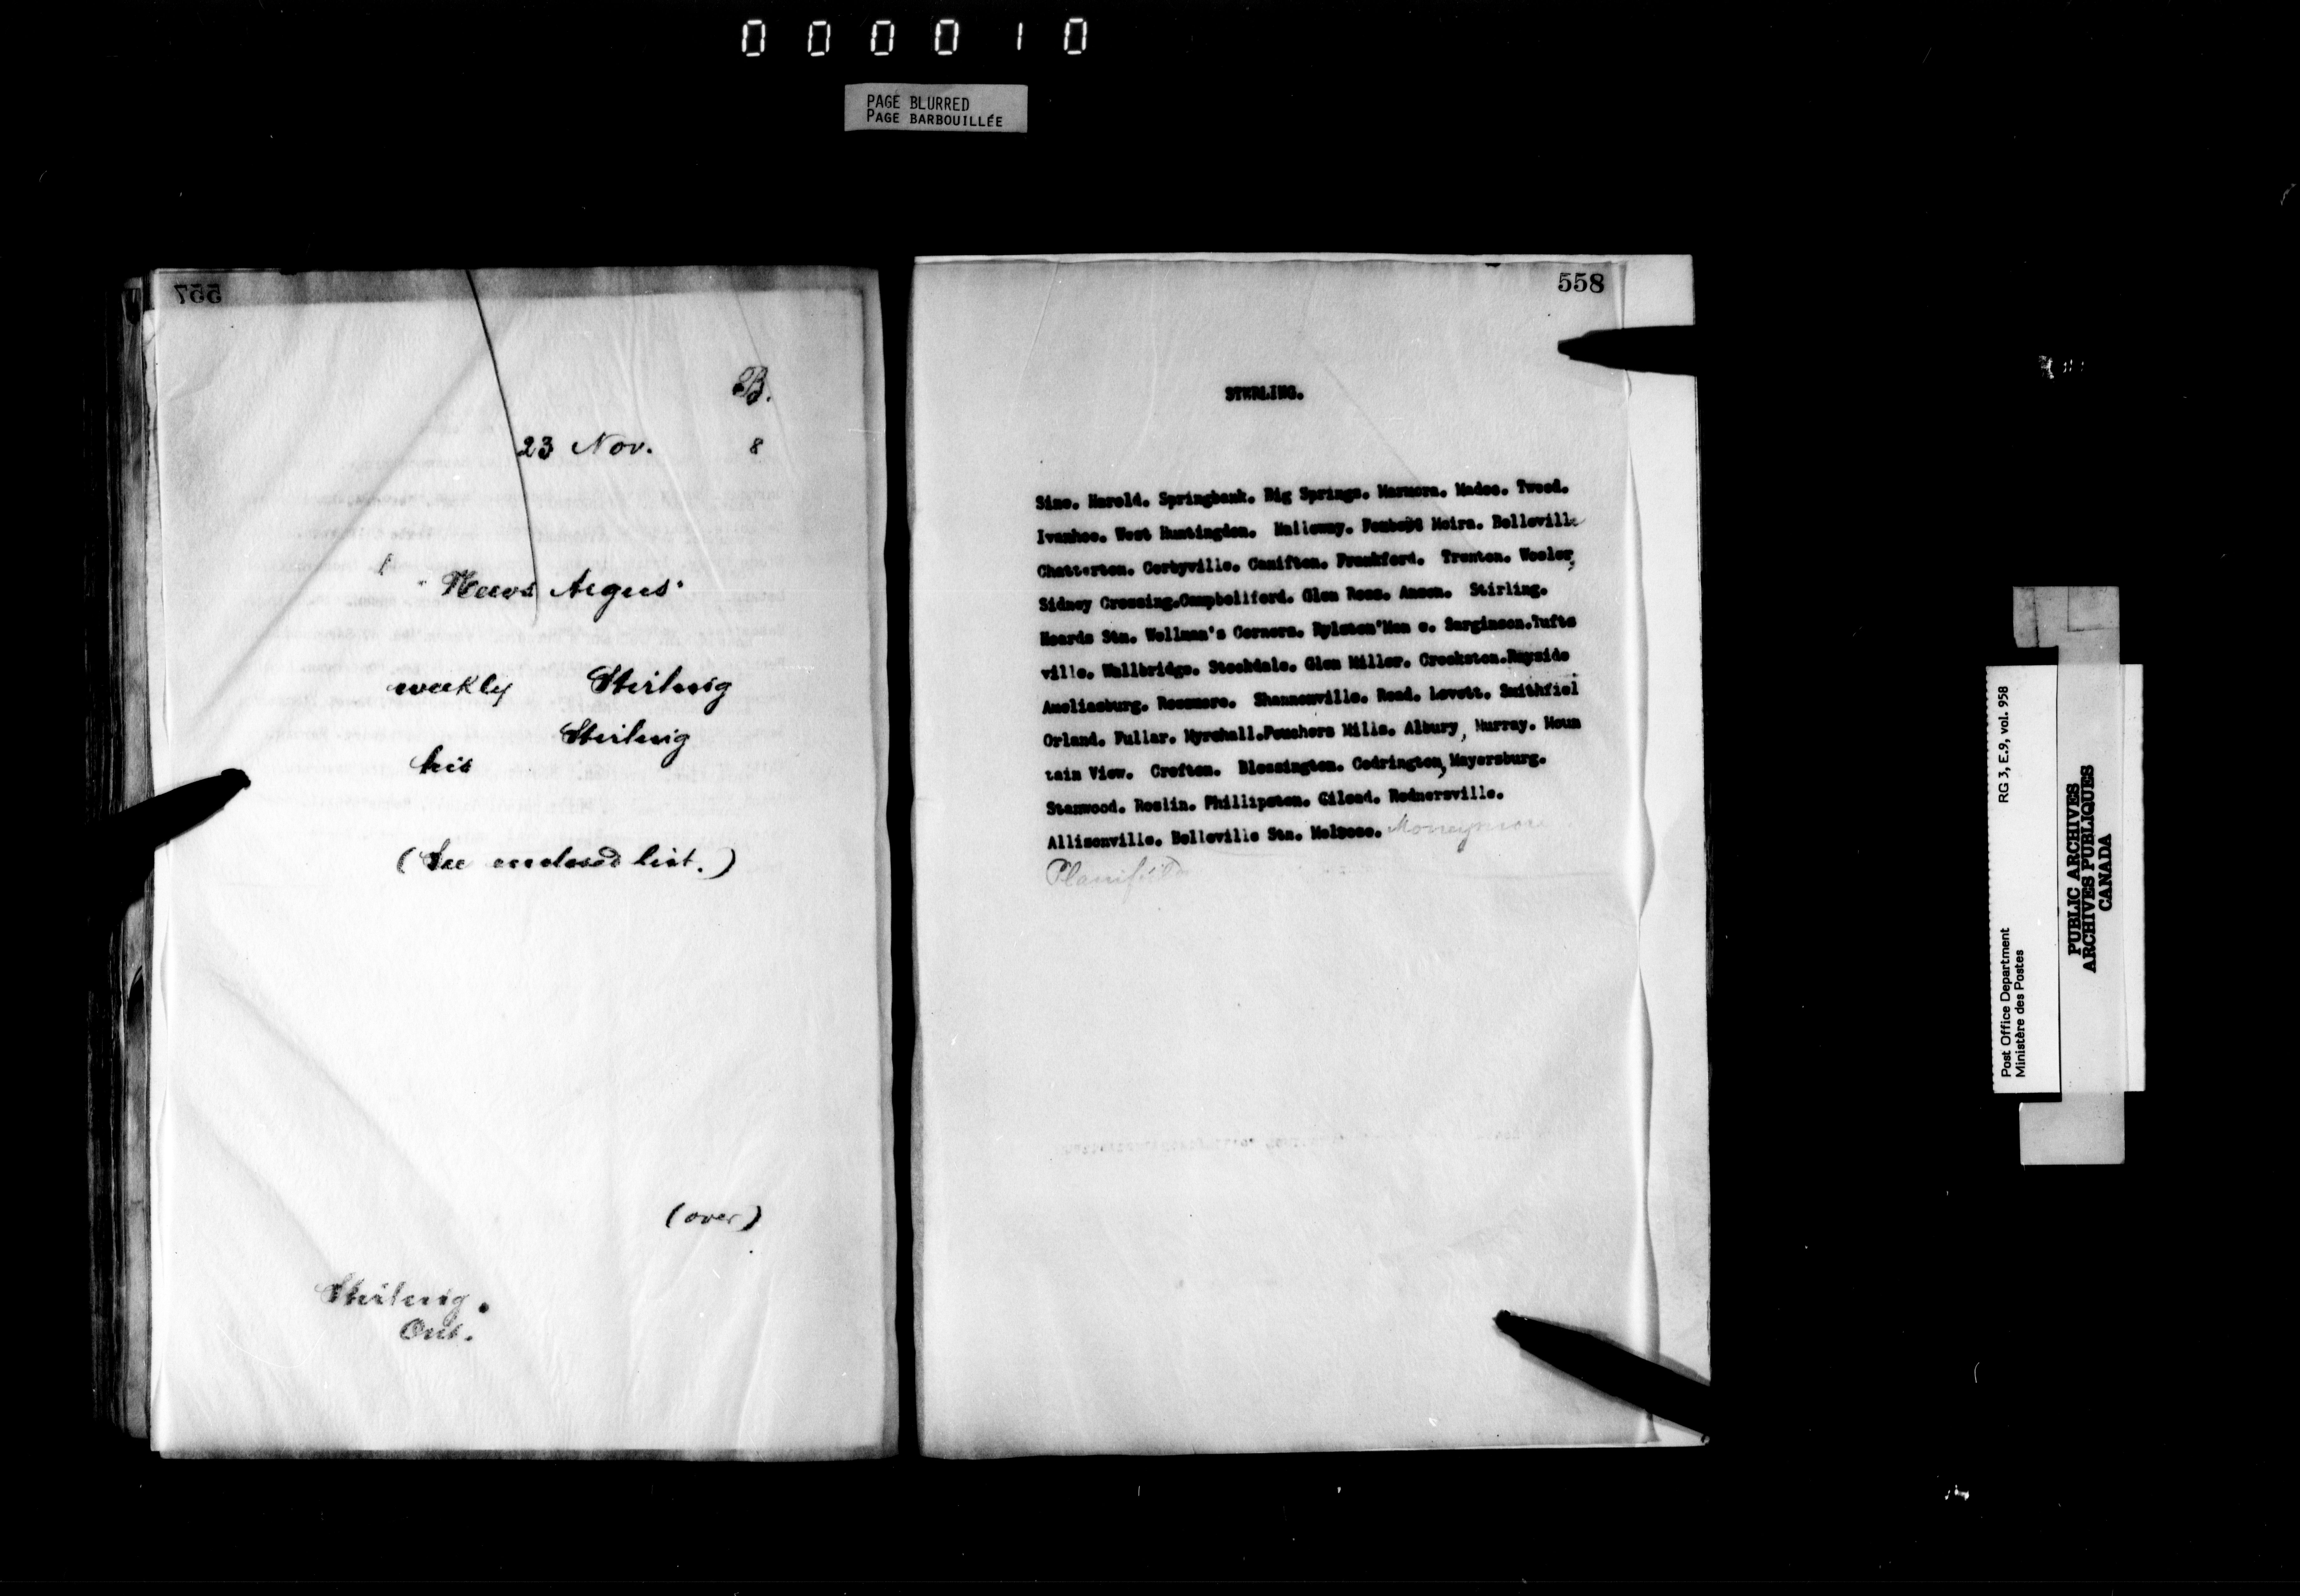 000010
PAGE BLURRED
PAGE BARBOUILLÉE
557
B.
23 Nov. 8
"News Argus"
weekly Stirling
Stirling
his
(See enclosed list.)
(over)
Stirling.
Ont.
558
STIRLING.
Sine. Harold. Springbank. Big Springs. Marmora. Madoc. Tweed.
Ivanhoe. West Huntingdon. Halloway. Moira. Belleville
Chatterton. Corbyville. Canifton. Frankford. Trenton. Wooler,
Sidney Crossing.Campbellford. Glen Ross. Anson. Stirling.
Hoards Stn. Wellman's Corners. Rylston'Men e. Sarginson.Tufts
ville. Wallbridge. Stockdale. Glen Miller. Crookston.Bayside
Ameliasburg. Rossmore. Shannonville. Read. Lovett. Smithfiel
Orland. Fuller. Myrehall.Fouchers Mills. Albury, Murray. Moun
tain View. Crofton. Blessington. Codrington, Mayersburg.
Stanwood. Roslin. Phillipston. Gilead. Rednersville.
Allisonville. Belleville Stn. Melrose. Moneymore
Plainfield
Post Office Department
Ministère des Postes
RG 3, E.9, vol. 958
PUBLIC ARCHIVES
ARCHIVES PUBLIQUES
CANADA